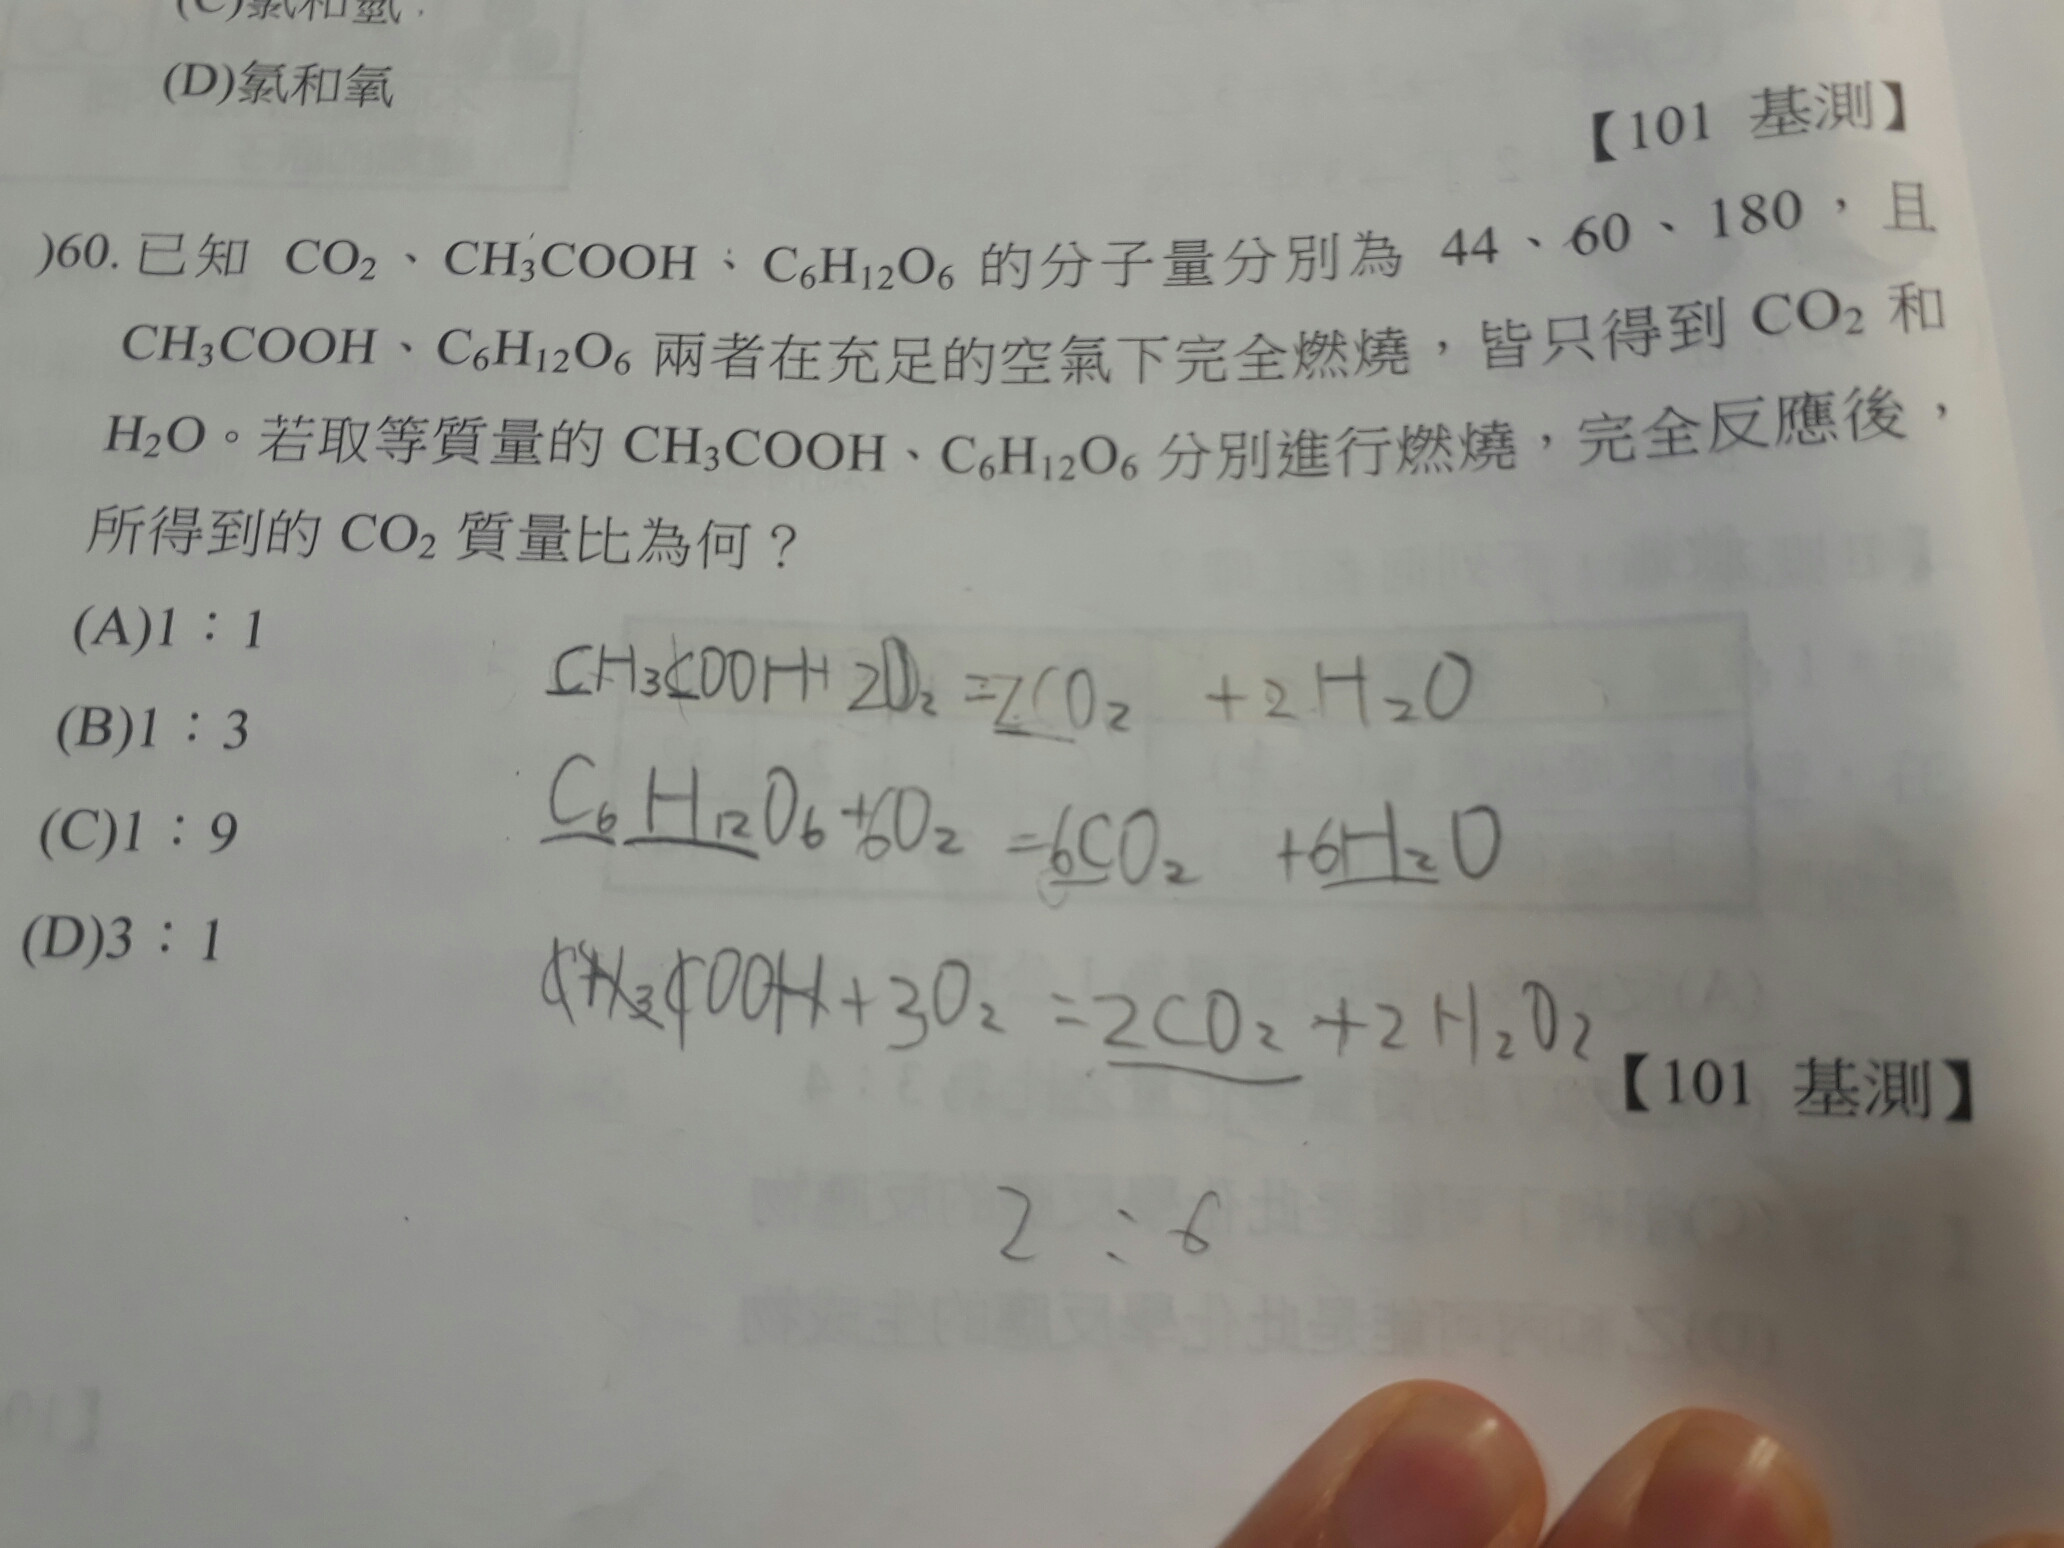 (C)氯和氫
(D)氯和氧
【101 基測】
)60. 已知 CO₂、CH₃COOH、C₆H₁₂O₆ 的分子量分別為 44、60、180，且
CH₃COOH、C₆H₁₂O₆ 兩者在充足的空氣下完全燃燒，皆只得到 CO₂ 和
H₂O。若取等質量的 CH₃COOH、C₆H₁₂O₆ 分別進行燃燒，完全反應後，
所得到的 CO₂ 質量比為何？
(A)1：1
(B)1：3
(C)1：9
(D)3：1
CH₃COOH+2O₂=2CO₂ +2H₂O
C₆H₁₂O₆+6O₂=6CO₂ +6H₂O
CH₃COOH+3O₂=2CO₂+2H₂O₂
【101 基測】
2:6